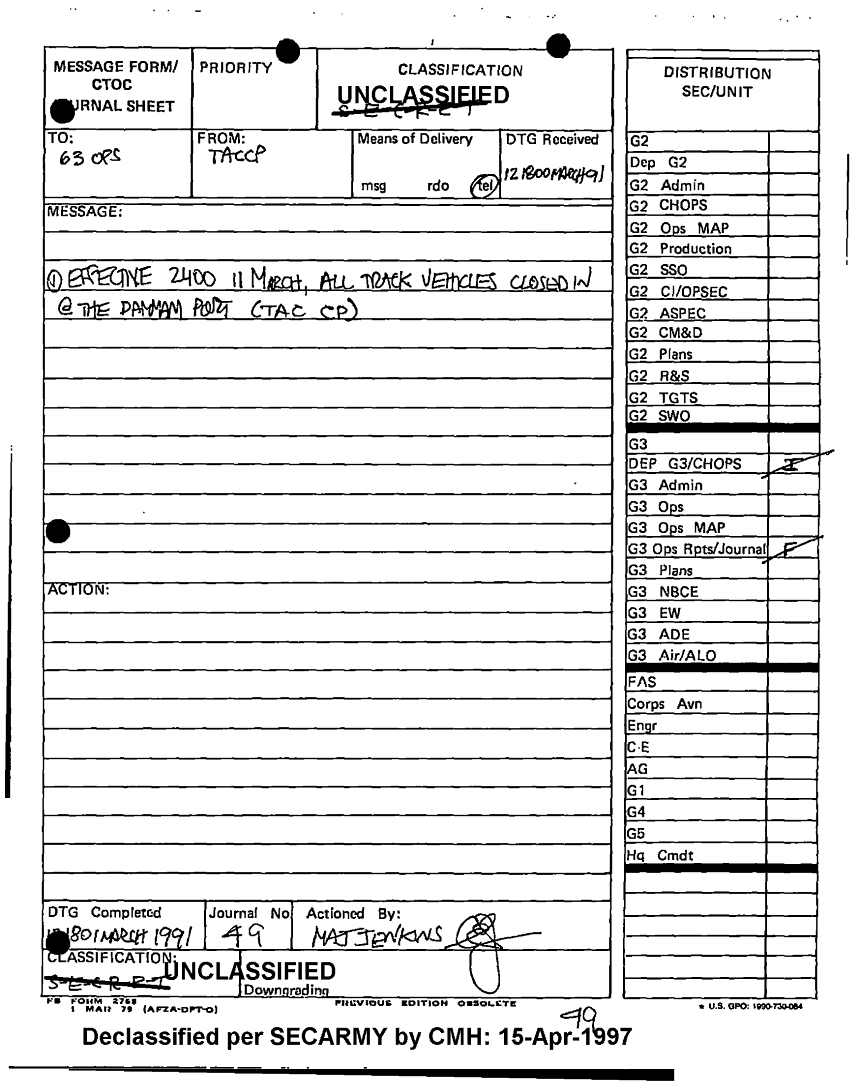 MESSAGE FORM/
CTOC
URNAL SHEET
PRIORITY
CLASSIFICATION
UNCLASSIFIED
S-E-C-R-E-T
TO:
G3 OPS
FROM:
TACCP
Means of Delivery
msg rdo tel
DTG Received
121800MARCH91
MESSAGE:
① EFFECTIVE 2400 11 MARCH, ALL TRACK VEHICLES CLOSED IN
@ THE DAMMAM PORT (TAC CP)
ACTION:
DTG Completed
1801MARCH 1991
Journal No
49
Actioned By:
MAJ JENKINS
CLASSIFICATION:
S-E-C-R-E-T
UNCLASSIFIED
Downgrading
FB FORM 2768
1 MAR 79 (AFZA-DPT-O)
PREVIOUS EDITION OBSOLETE
49
DISTRIBUTION
SEC/UNIT
G2
Dep G2
G2 Admin
G2 CHOPS
G2 Ops MAP
G2 Production
G2 SSO
G2 CI/OPSEC
G2 ASPEC
G2 CM&D
G2 Plans
G2 R&S
G2 TGTS
G2 SWO
G3
DEP G3/CHOPS I
G3 Admin
G3 Ops
G3 Ops MAP
G3 Ops Rpts/Journal F
G3 Plans
G3 NBCE
G3 EW
G3 ADE
G3 Air/ALO
FAS
Corps Avn
Engr
C-E
AG
G1
G4
G5
Hq Cmdt
* U.S. GPO: 1990-730-084
Declassified per SECARMY by CMH: 15-Apr-1997